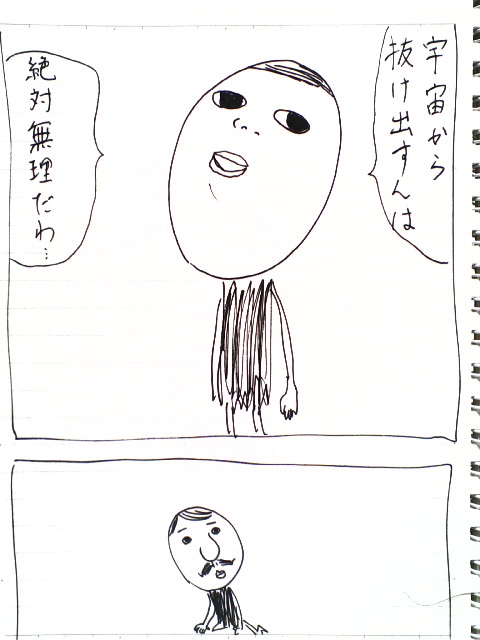 宇宙から
抜け出すんは
絶対無理だわ…